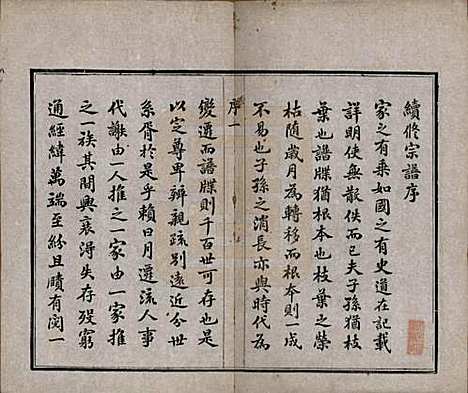 續修宗譜序
家之有乘如國之有史道在記載
詳明使無散佚而已夫子孫猶枝
葉也譜牒猶根本也枝葉之榮
枯隨歲月為轉移而根本則一成
不易也子孫之消長亦與時代為
序一
變遷而譜牒則千百世可存也是
以定尊卑辨親疏別遠近分世
系胥於是乎賴日月遷流人事
代謝由一人推之一家由一家推
之一族其間興衰得失存歿窮
通經緯萬端至紛且賾有閱一